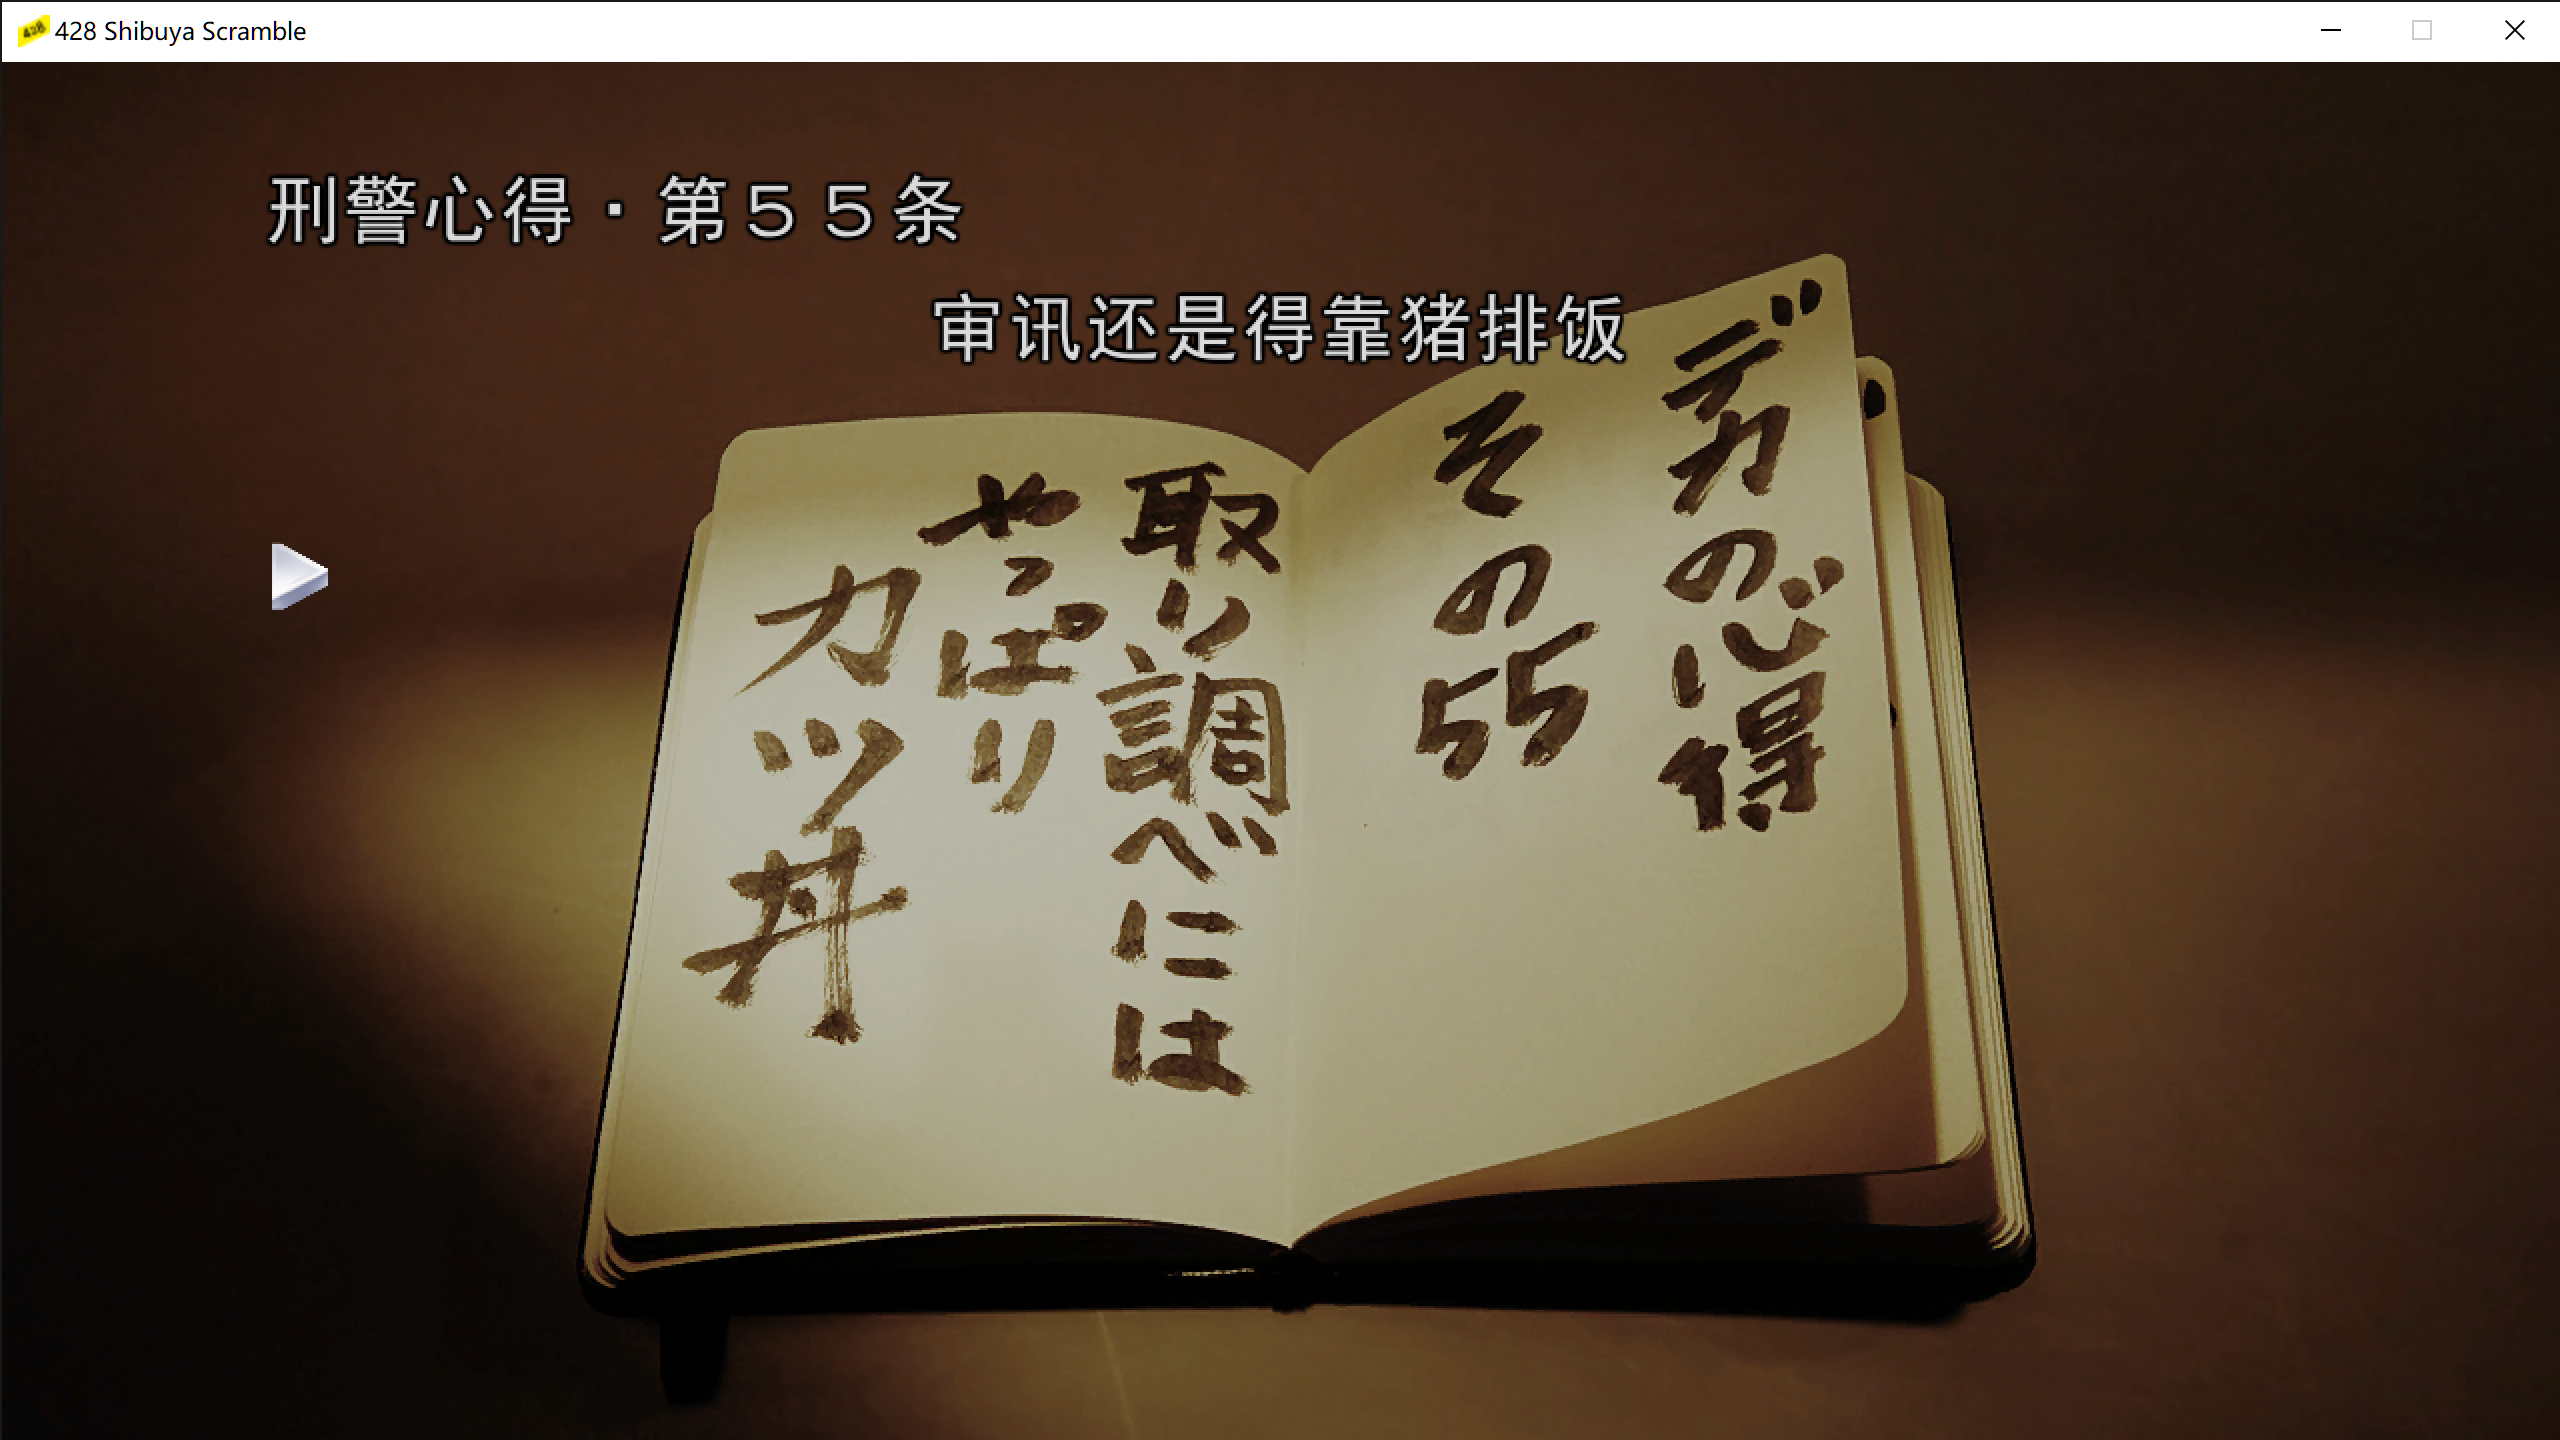 428 Shibuya Scramble
刑警心得·第５５条
审讯还是得靠猪排饭
デカの心得
その55
取り調べには
やっぱり
カツ丼